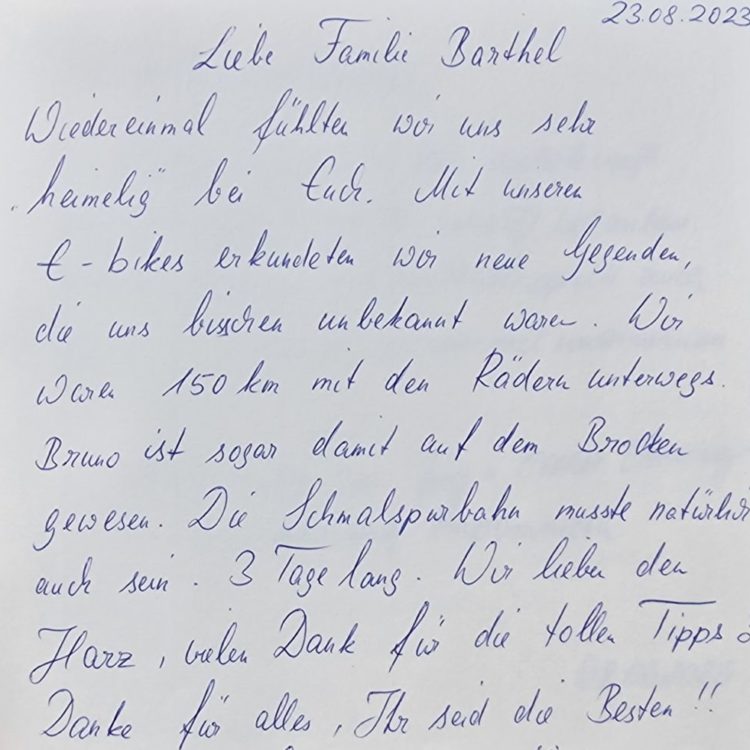 23.08.2023
Liebe Familie Barthel
Wiedereinmal fühlten wir uns sehr
„heimelig" bei Euch. Mit unseren
E-bikes erkundeten wir neue Gegenden,
die uns bisschen unbekannt waren. Wir
waren 150 km mit den Rädern unterwegs.
Bruno ist sogar damit auf dem Brocken
gewesen. Die Schmalspurbahn musste natürlich
auch sein. 3 Tage lang. Wir lieben den
Harz, vielen Dank für die tollen Tipps
Danke für alles, Ihr seid die Besten !!